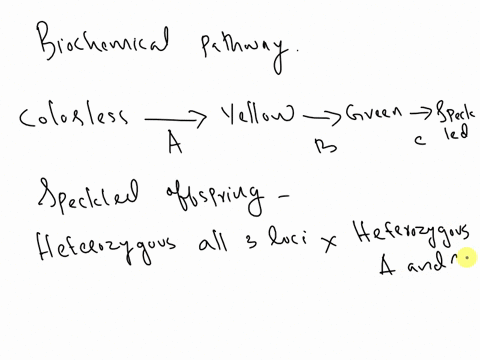 Biochemical Pathway.
Colorless → Yellow → Green → Speckled
A B C
Speckled offspring -
Heterozygous all 3 loci x Heterozygous
A and